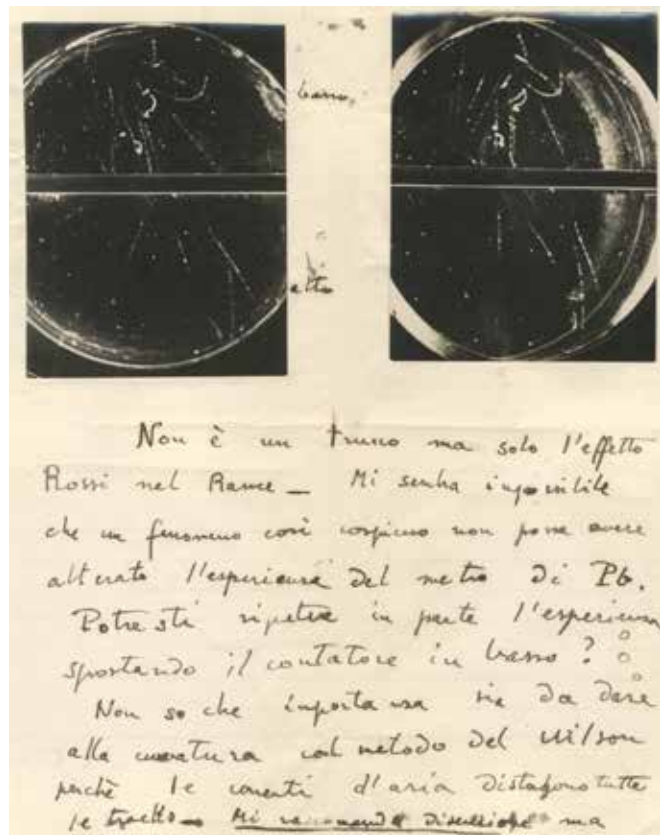 basso,
etto
Non è un trucco ma solo l'effetto
Rossi nel Rame — Mi sembra impossibile
che un fenomeno così cospicuo non possa avere
alterato l'esperienza del metro di Pb.
Potresti ripetere in parte l'esperienza
spostando il contatore in basso?
Non so che importanza sia da dare
alla curvatura col metodo del Wilson
perchè le correnti d'aria distorgono tutte
le tracce — Mi raccomando discrezione ma